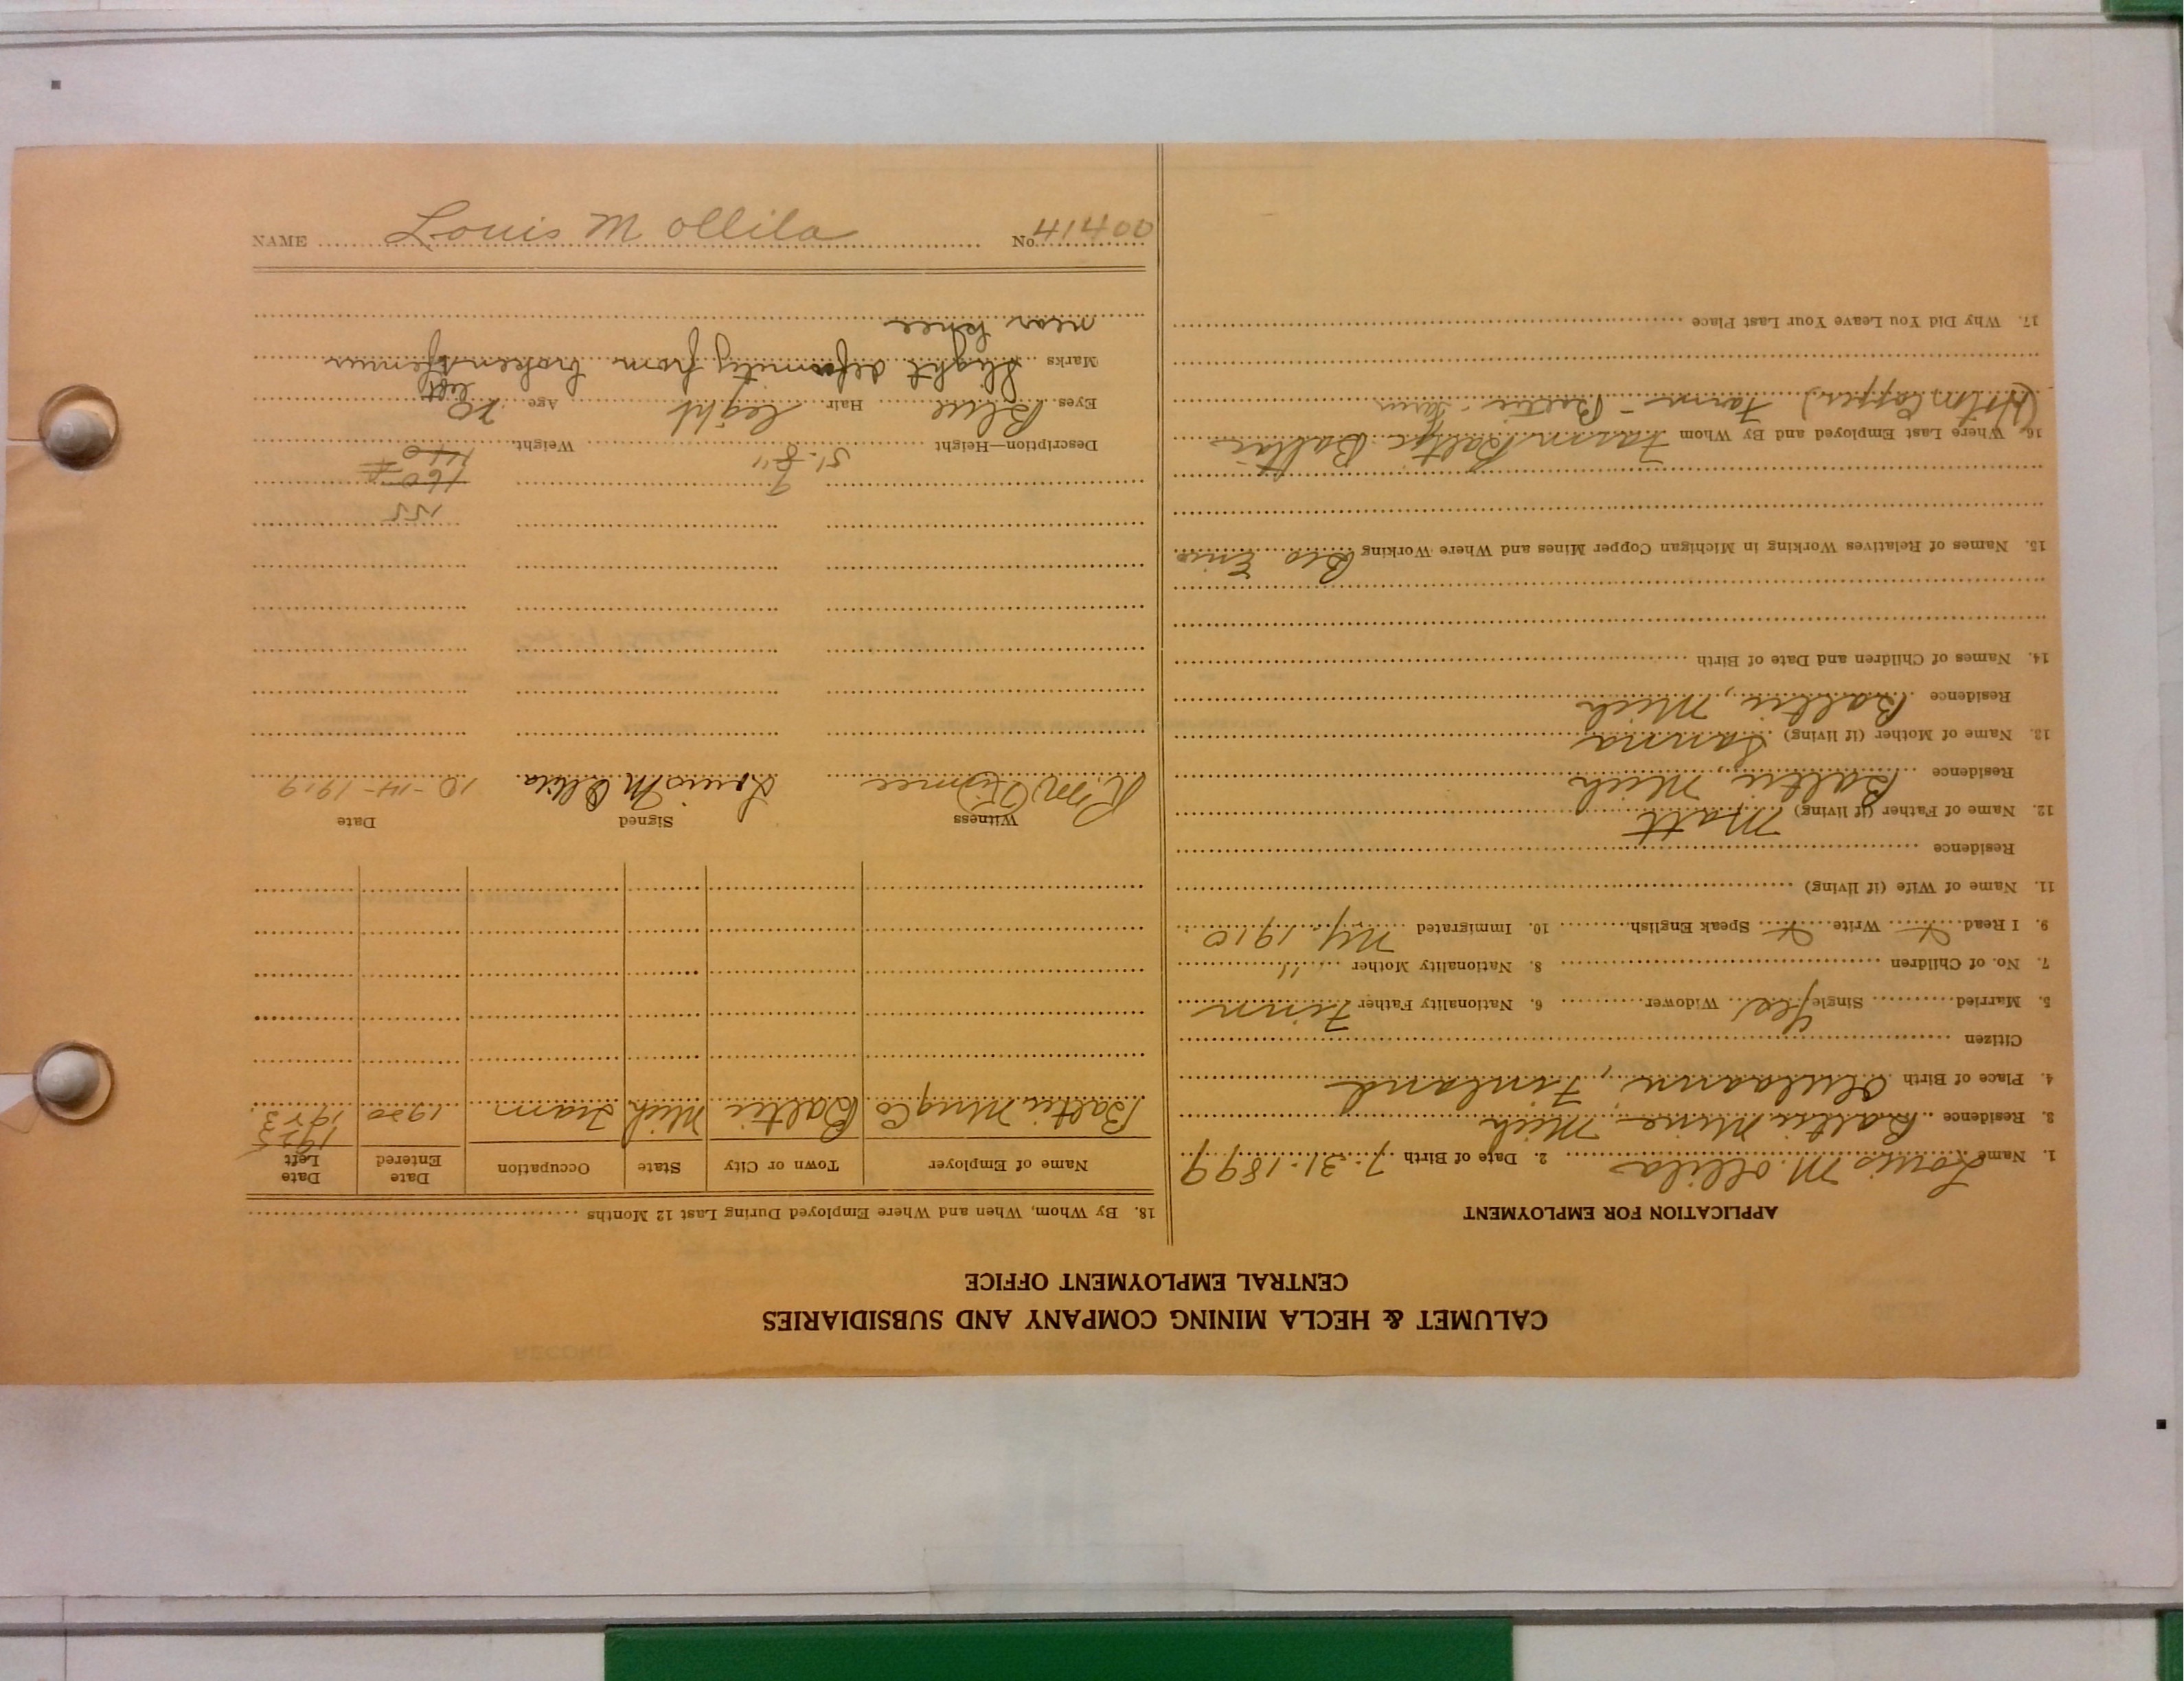 CALUMET & HECLA MINING COMPANY AND SUBSIDIARIES
CENTRAL EMPLOYMENT OFFICE
APPLICATION FOR EMPLOYMENT
1. Name Louis M. Ollila 2. Date of Birth 7-31-1899
3. Residence Baltic Mine, Mich
4. Place of Birth Finland
Citizen
5. Married Single Yes Widower 6. Nationality Father Finn
7. No. of Children 8. Nationality Mother "
9. I Read Write Speak English 10. Immigrated NY 1910
11. Name of Wife (if living)
Residence
12. Name of Father (if living) Matt
Residence Baltic, Mich
13. Name of Mother (if living) Sanna
Residence Baltic, Mich
14. Names of Children and Date of Birth
15. Names of Relatives Working in Michigan Copper Mines and Where Working Bro Eric
16. Where Last Employed and By Whom Baltic
17. Why Did You Leave Your Last Place
18. By Whom, When and Where Employed During Last 12 Months
Name of Employer Town or City State Occupation Date Entered Date Left
1925
Baltic Mng Co Baltic Mich Tram 1920 1923
Witness Signed Date
Louis M Ollila 10-14-1919
155
160
140
Description—Height 5'-8" Weight
Eyes Blue Hair light Age 20
left
Marks Slight deformity from broken femur
near knee
NAME Louis M Ollila No. 41400